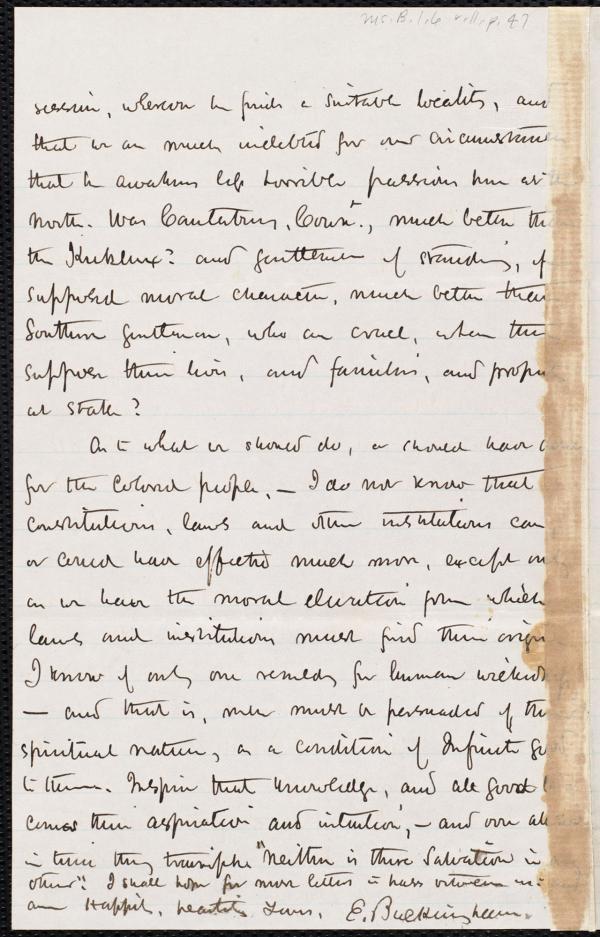 Ms. B. 1.6 v. 11, p. 47
session, whereon he finds a suitable locality, and
that we are much indebted for our circumstances
that he awakens less horrible passions here at the
North. Was Canterbury, Conn., much better than
the Kuklux? and gentlemen of standing, of
supposed moral character, much better than
Southern gentlemen, who are cruel, when they
suppose their lives, and families, and property
at stake?
As to what we should do, or should have done
for the colored people, — I do not know that
constitutions, laws and other institutions can
or could have effected much more, except only
as we have the moral elevation from which
laws and institutions must find their origin
I know of only one remedy for human wickedness
— and that is, men must be persuaded of their
spiritual nature, as a condition of Infinite good
to them. Inspire that knowledge, and all good
comes their aspiration and intuition, — and over all
in time they triumph. "Neither is there Salvation in any
other". I shall hope for more letters to pass between us:
am Happily, heartily Yours, E. Buckingham.